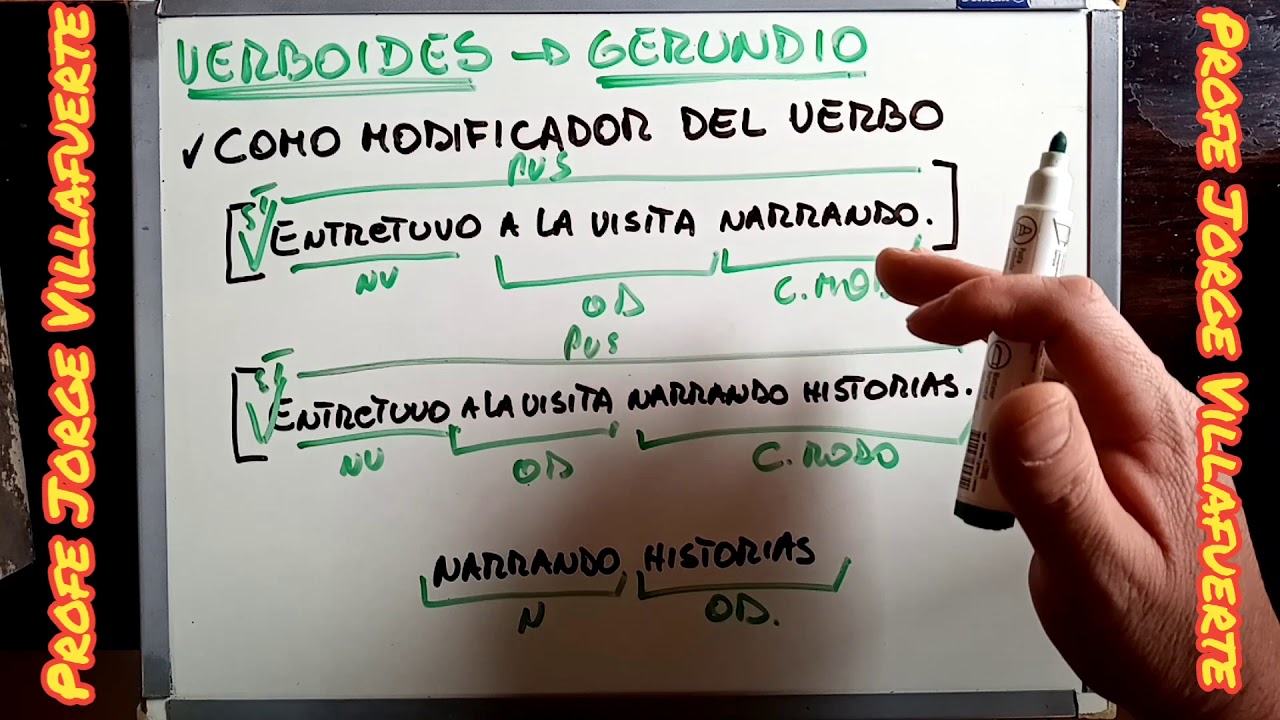 PROFE JORGE VILLAFUERTE
VERBOIDES → GERUNDIO
✓ COMO MODIFICADOR DEL VERBO
PVS
ENTRETUVO A LA VISITA NARRANDO.
NV OD C. MOD
PVS
ENTRETUVO A LA VISITA NARRANDO HISTORIAS.
NV OD C. MODO
NARRANDO HISTORIAS
N OD.
PROFE JORGE VILLAFUERTE